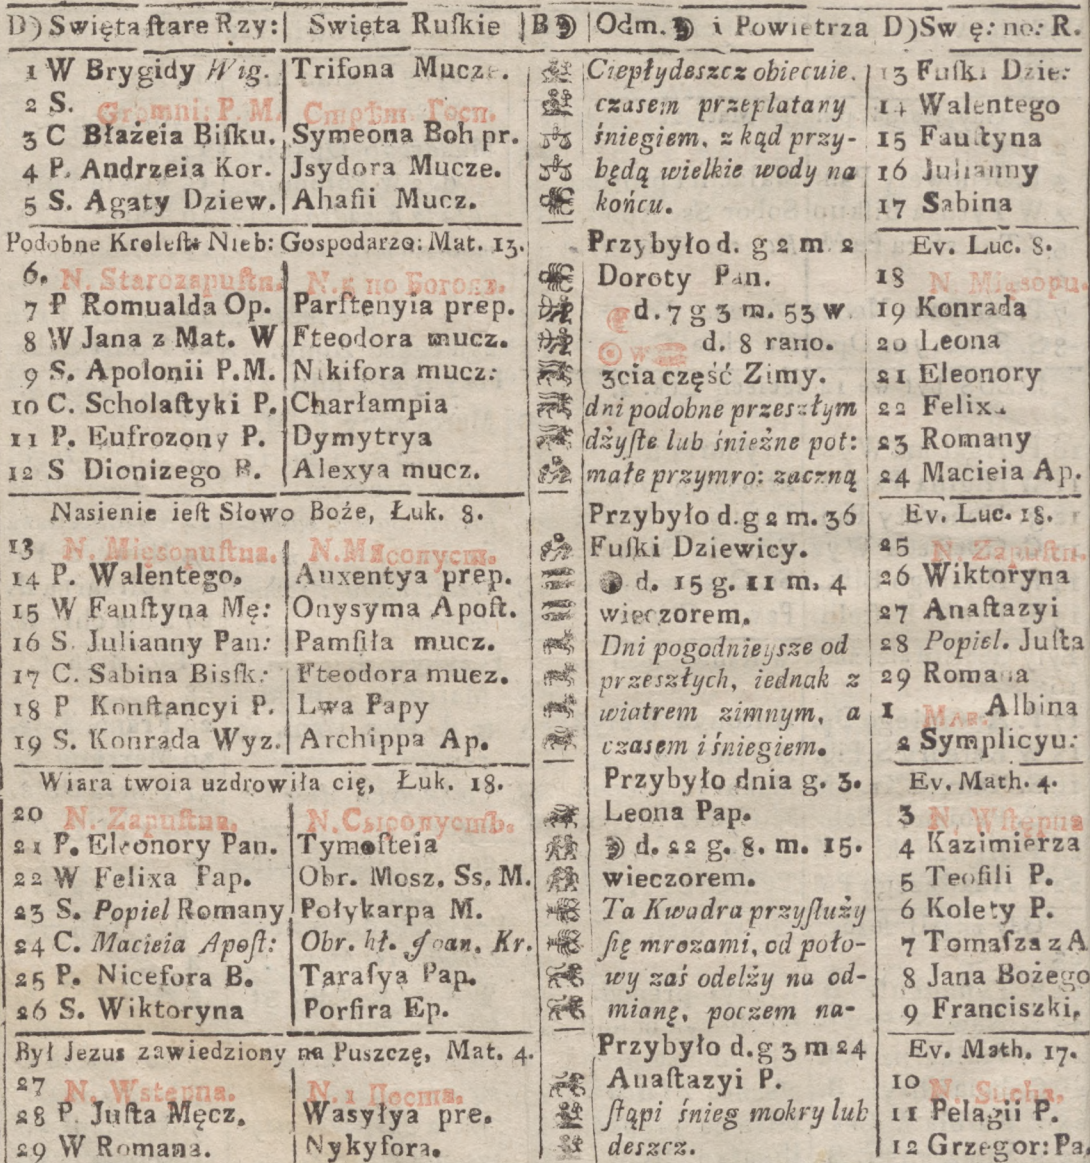 D) Swięta ſtare Rzy: | Swięta Ruſkie | B | Odm. i Powietrza D) Sw ę: no: R.
1 W Brygidy Wig. | Trifona Mucze. | Ciepły deszcz obiecuie, | 13 Fuſki Dzie:
2 S. Gromni: P. M. | | czasem przeplatany | 14 Walentego
3 C Błażeia Biſku. | Symeona Boh pr. | śniegiem, z kąd przy- | 15 Fauſtyna
4 P. Andrzeia Kor. | Jsydora Mucze. | będą wielkie wody na | 16 Julianny
5 S. Agaty Dziew. | Ahafii Mucz. | końcu. | 17 Sabina
Podobne Kroleſt: Nieb: Gospodarzo: Mat. 13. | Przybyło d. g 2 m 2 | Ev. Luc. 8.
6. N. Starozapuſtn. | | Doroty Pan. | 18 N. Mięsopu.
7 P Romualda Op. | Parſtenyia prep. | d. 7 g 3 m. 53 w | 19 Konrada
8 W Jana z Mat. W | Fteodora mucz. | w d. 8 rano. | 20 Leona
9 S. Apolonii P. M. | Nikifora mucz: | 3cia część Zimy. | 21 Eleonory
10 C. Scholaſtyki P. | Charłampia | dni podobne przeszłym | 22 Felixa
11 P. Eufrozony P. | Dymytrya | dżyſte lub śnieżne pot: | 23 Romany
12 S Dionizego B. | Alexya mucz. | małe przymro: zaczną | 24 Macieia Ap.
Nasienie ieſt Słowo Boże, Łuk. 8. | Przybyło d. g 2 m. 36 | Ev. Luc. 18.
13 N. Mięsopuſtna. | | Fuſki Dziewicy. | 25 N. Zapuſtn.
14 P. Walentego. | Auxentya prep. | d. 15 g. 11 m. 4 | 26 Wiktoryna
15 W Fauſtyna Mę: | Onysyma Apoſt. | wieczorem. | 27 Anaſtazyi
16 S. Julianny Pan: | Pamſiła mucz. | Dni pogodnieysze od | 28 Popiel. Juſta
17 C. Sabina Bisſk: | Fteodora muez. | przeszłych, iednak z | 29 Romana
18 P Konſtancyi P. | Lwa Papy | wiatrem zimnym, a | 1 Mar. Albina
19 S. Konrada Wyz. | Archippa Ap. | czasem i śniegiem. | 2 Symplicyu:
Wiara twoia uzdrowiła cię, Łuk. 18. | Przybyło dnia g. 3. | Ev. Math. 4.
20 N. Zapuſtna. | | Leona Pap. | 3 N. Wſtępna
21 P. Eleonory Pan. | Tymoſteia | d. 22 g. 8. m. 15. | 4 Kazimierza
22 W Felixa Pap. | Obr. Mosz. Ss. M. | wieczorem. | 5 Teofili P.
23 S. Popiel Romany | Połykarpa M. | Ta Kwadra przyſłuży | 6 Kolety P.
24 C. Macieia Apoſt: | Obr. hł. Joan. Kr. | ſię mrozami, od poło- | 7 Tomaſza z A
25 P. Nicefora B. | Taraſya Pap. | wy zaś odelży na od- | 8 Jana Bożego
26 S. Wiktoryna | Porfira Ep. | mianę, poczem na- | 9 Franciszki.
Był Jezus zawiedziony na Puszczę, Mat. 4. | Przybyło d. g 3 m 24 | Ev. Math. 17.
27 N. Wstępna. | | Anaſtazyi P. | 10 N. Sucha.
28 P. Juſta Męcz. | Wasyłya pre. | ſtąpi śnieg mokry lub | 11 Pelagii P.
29 W Romana. | Nykyfora. | deszcz. | 12 Grzegor: Pa.